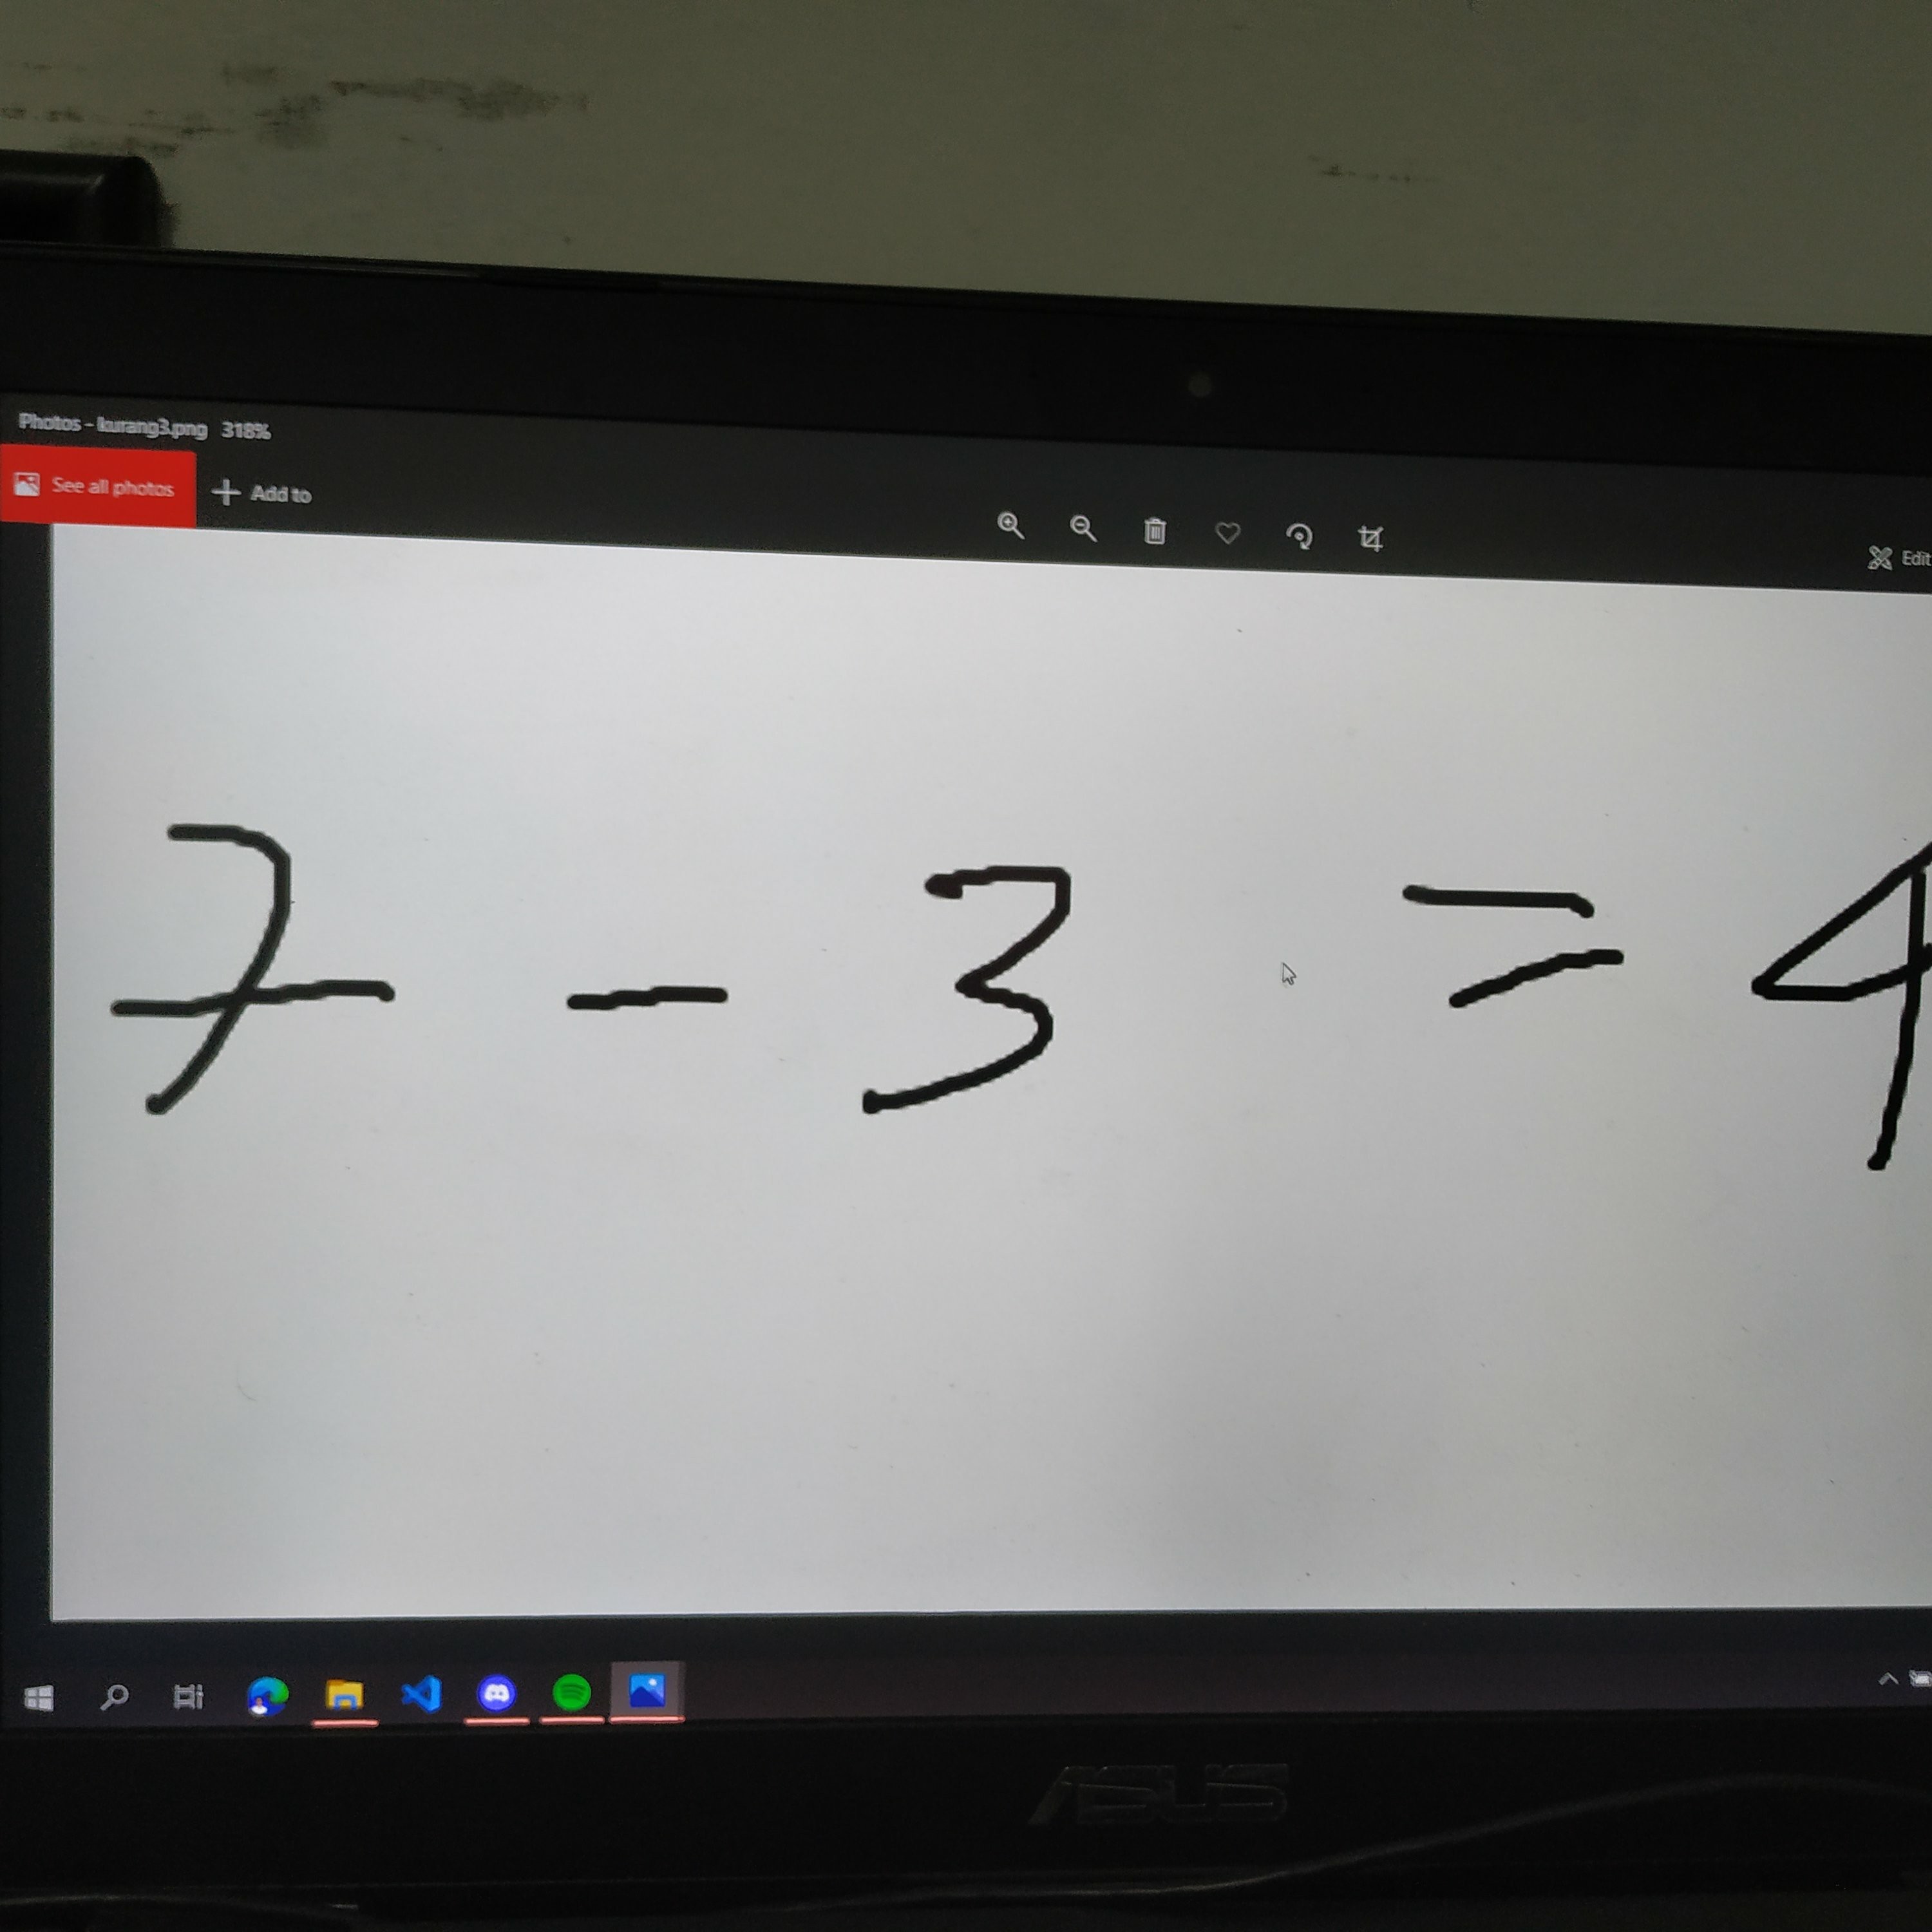 Photos - kurang3.png 318%
See all photos
Add to
Edit
7 - 3 = 4
ASUS